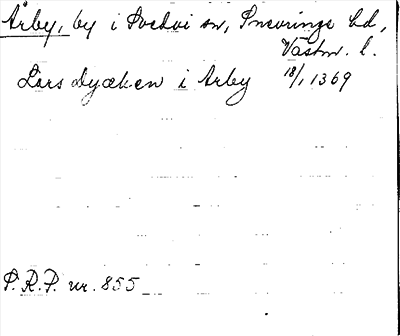 Årby, by i Svedvi sn, Snevringe hd,
Västm. l.
Lars dyækn i Arby 18/1 1369
P.R.P. nr. 855